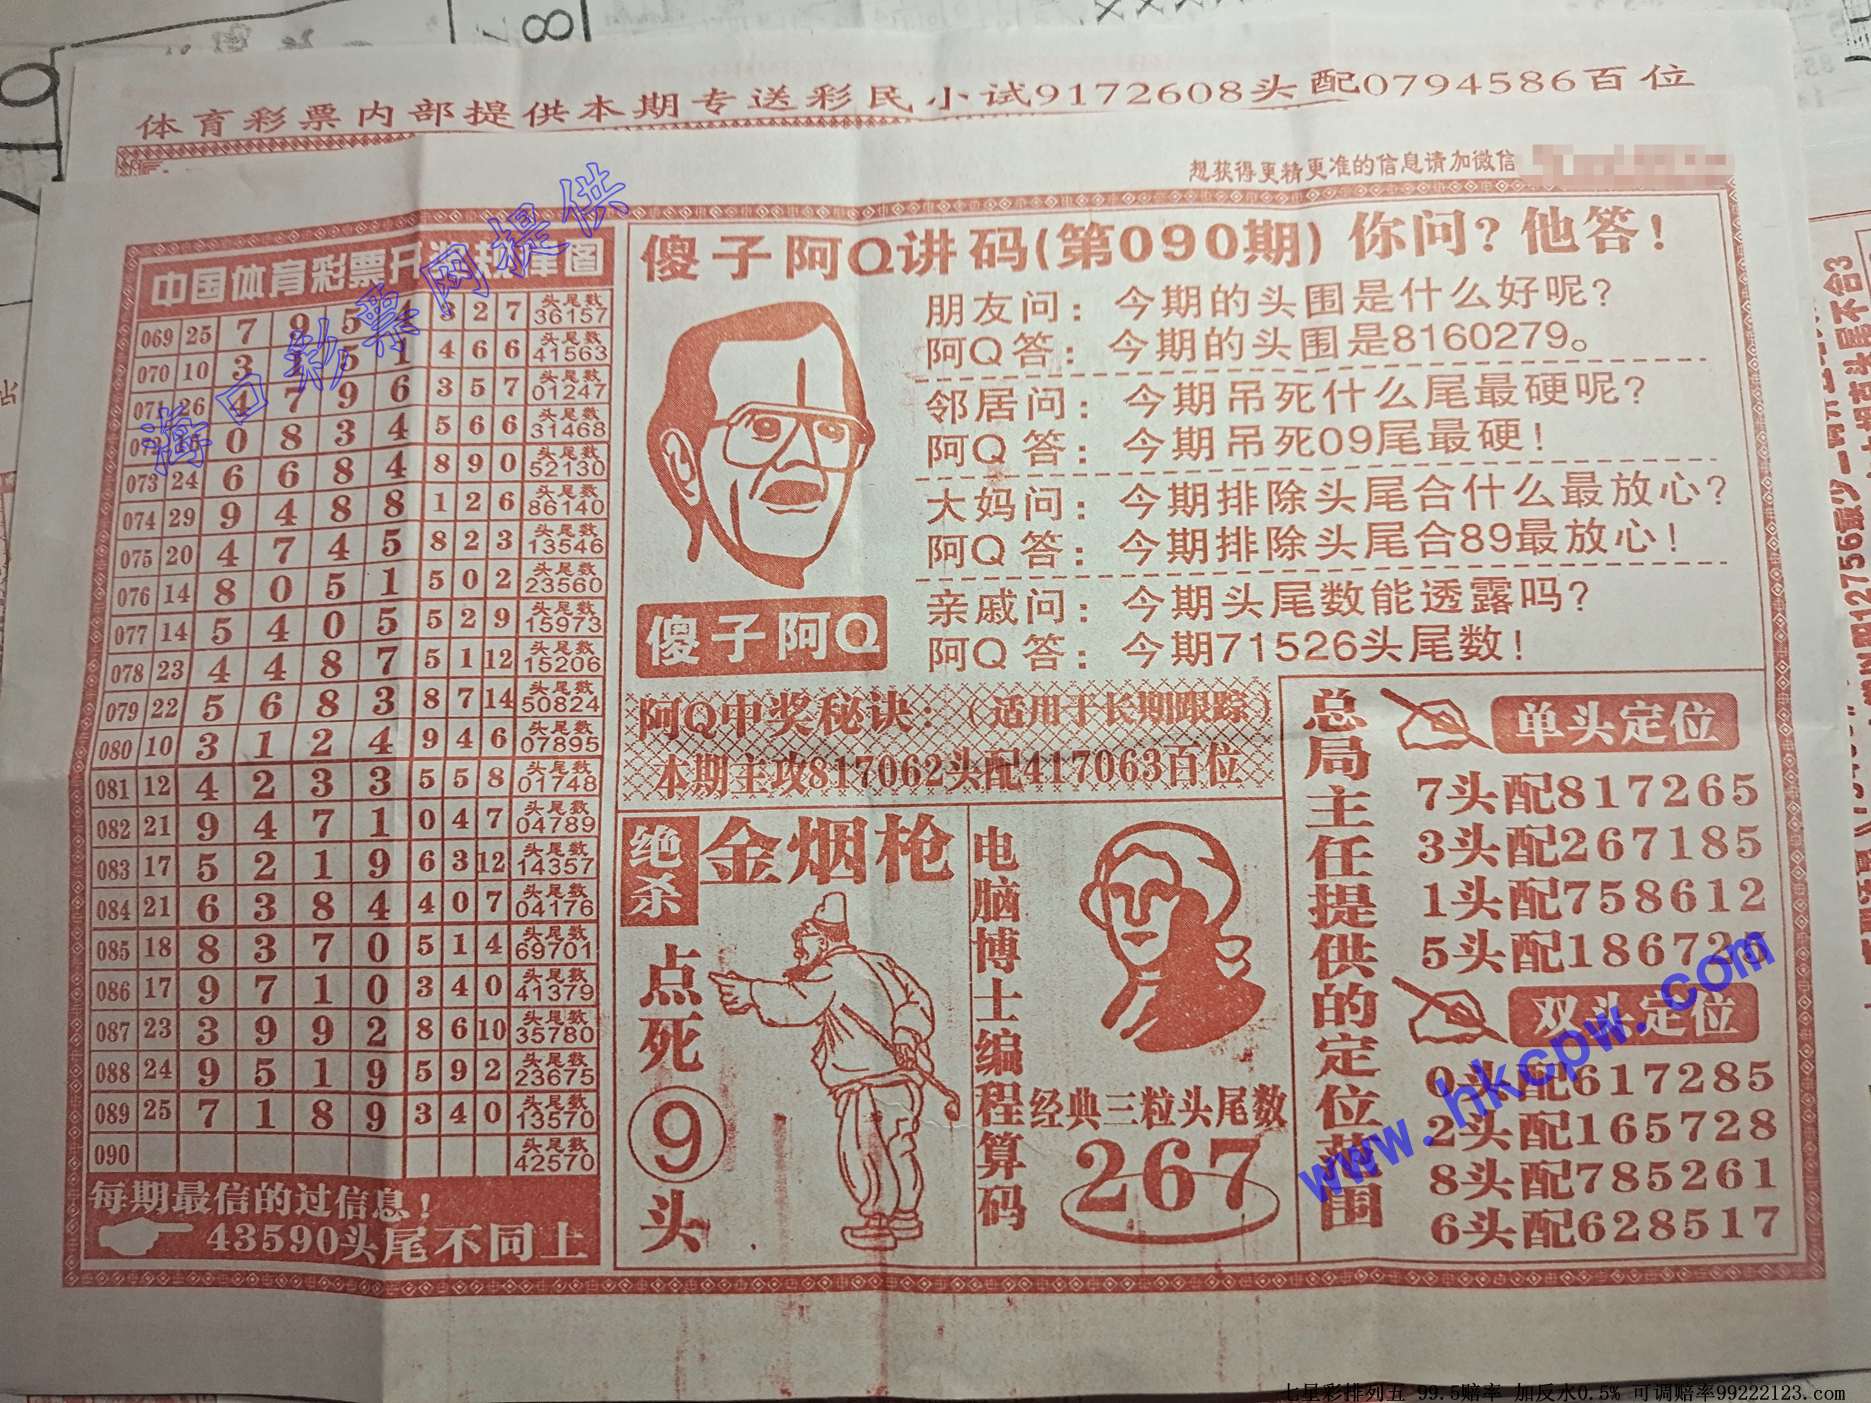 体育彩票内部提供本期专送彩民小试9172608头配0794586百位
想获得更精更准的信息请加微信
中国体育彩票开
069 25 7 9 5 4 3 2 7 头尾数36157
070 10 3 1 5 1 4 6 6 头尾数41563
071 26 4 7 9 6 3 5 7 头尾数01247
0 8 3 4 5 6 6 头尾数31468
073 24 6 6 8 4 8 9 0 头尾数52130
074 29 9 4 8 8 1 2 6 头尾数86140
075 20 4 7 4 5 8 2 3 头尾数13546
076 14 8 0 5 1 5 0 2 头尾数23560
077 14 5 4 0 5 5 2 9 头尾数15973
078 23 4 4 8 7 5 1 12 头尾数15206
079 22 5 6 8 3 8 7 14 头尾数50824
080 10 3 1 2 4 9 4 6 头尾数07895
081 12 4 2 3 3 5 5 8 头尾数01748
082 21 9 4 7 1 0 4 7 头尾数04789
083 17 5 2 1 9 6 3 12 头尾数14357
084 21 6 3 8 4 4 0 7 头尾数04176
085 18 8 3 7 0 5 1 4 头尾数69701
086 17 9 7 1 0 3 4 0 头尾数41379
087 23 3 9 9 2 8 6 10 头尾数35780
088 24 9 5 1 9 5 9 2 头尾数23675
089 25 7 1 8 9 3 4 0 头尾数13570
090 头尾数42570
每期最信的过信息！
43590头尾不同上
傻子阿Q讲码(第090期) 你问？他答！
朋友问：今期的头围是什么好呢？
阿Q答：今期的头围是8160279。
邻居问：今期吊死什么尾最硬呢？
阿Q答：今期吊死09尾最硬！
大妈问：今期排除头尾合什么最放心？
阿Q答：今期排除头尾合89最放心！
亲戚问：今期头尾数能透露吗？
阿Q答：今期71526头尾数！
傻子阿Q
阿Q中奖秘诀：（适用于长期跟踪）
本期主攻817062头配417063百位
绝杀
金烟枪
点死⑨头
电脑博士编程算码
经典三粒头尾数
267
总局主任提供的定位范围
单头定位
7头配817265
3头配267185
1头配758612
5头配186726
双头定位
0头配617285
2头配165728
8头配785261
6头配628517
海口彩票网提供
www.hkcpw.com
七星彩排列五 99.5赔率 加反水0.5% 可调赔率99222123.com